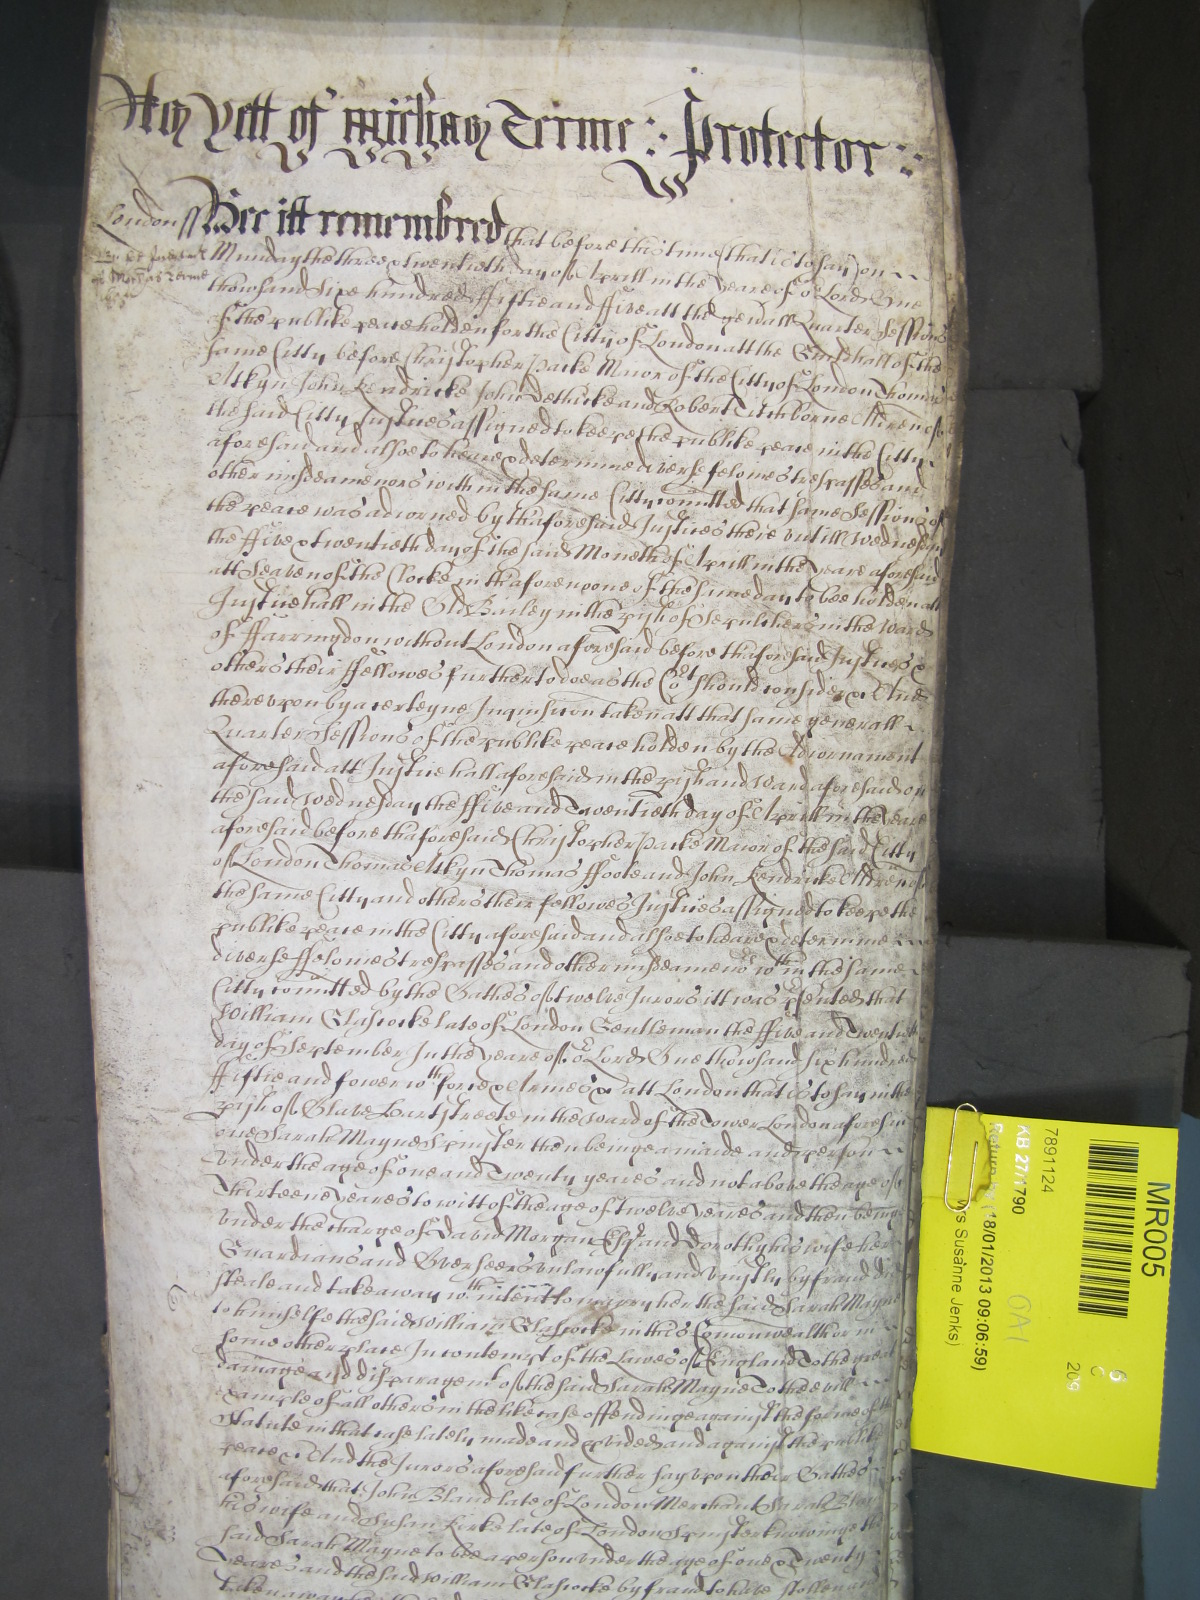 yett of Michas Terme : Protector :
London ss Bee itt remembred that before this time (that is to say) on
Munday the three & twentieth day of Aprill in the yeare of or Lord One
thowsand Sixe hundred ffiftie and ffive att the genall Quarter Sessions
of the publike peace holden for the Citty of London att the Guildhall of the
same Citty before Christopher Packe Maior of the Citty of London Thomas
Atkyn John Kendricke John Dethicke and Robert Titchborne Aldren of
the said Citty Justices assigned to keepe the publike peace in the Citty
aforesaid and alsoe to heare & determine diverse felonies trespasses and
other misdeamenors within the same Citty comitted that same Sessions of
the peace was adiorned by thaforesaid Justices there untill Wednesday
the ffive & twentieth day of the said Moneth of Aprill in the yeare aforesaid
att Seaven of the Clocke in thaforenoone of the same day to bee holden att
Justice hall in the Old Bailey in the pish of Sepulchers in the Ward
of ffarringdon without London aforesaid before thaforesaid Justices &
others their ffellowes further to doe as the Cort should consider &c And
thereupon by a certeyne Inquisicon taken att that same generall
Quarter Sessions of the publike peace holden by the Adiornament
aforesaid att Justice hall aforesaid in the pish and Ward aforesaid on
the said Wednesday the ffive and Twentieth day of Aprill in the yeare
aforesaid before thaforesaid Christopher Packe Maior of the said Citty
of London Thomas Atkyn Thomas ffoote and John Kendricke Aldren of
the same Citty and others their fellowes Justices assigned to keepe the
publike peace in the Citty aforesaid and alsoe to heare & determine
diverse ffelonies trespasses and other misdeamenors wthin the same
Citty comitted by the Oathes of twelve Jurors itt was psented that
William Glascocke late of London Gentleman the ffive and Twentieth
day of September In the yeare of or Lord One thowsand six hundred
ffiftie and fower wth force & Armes &c att London that is to say in the
pish of Olave Hartstreete in the Ward of the Tower London aforesaid
one Sarah Mayne Spinster then beinge a maide and person
under the age of one and Twenty yeares and not above the age of
Thirteene yeares to witt of the age of twelve yeares and then being
under the charge of David Morgan Esqr and Dorothy his wife her
Guardians and Overseers unlawfully and uniustly by fraud did
steale and take away wth intent to marry her the said Sarah Mayne
to himselfe the said William Glascocke in this Comonwealth or in
some other place In contempt of the Lawes of England To the great
damage and disparagemt of the said Sarah Mayne To the evill
example of all others in the like case offendinge against the forme of the
Statute in that case lately made and pvided and against the publike
peace &c And the Jurors aforesaid further say upon their Oathes
aforesaid that John Bland late of London Merchant Sarah Bland
his wife and Susan Kirke late of London Spinster knowinge the
said Sarah Mayne to bee a person under the age of one & Twenty
yeares and the said William Glascocke by fraud to have stollen and
taken away
MR005
6
C
209
7891124
KB 27/1790
(18/01/2013 09:06:59)
Mrs Susanne Jenks)